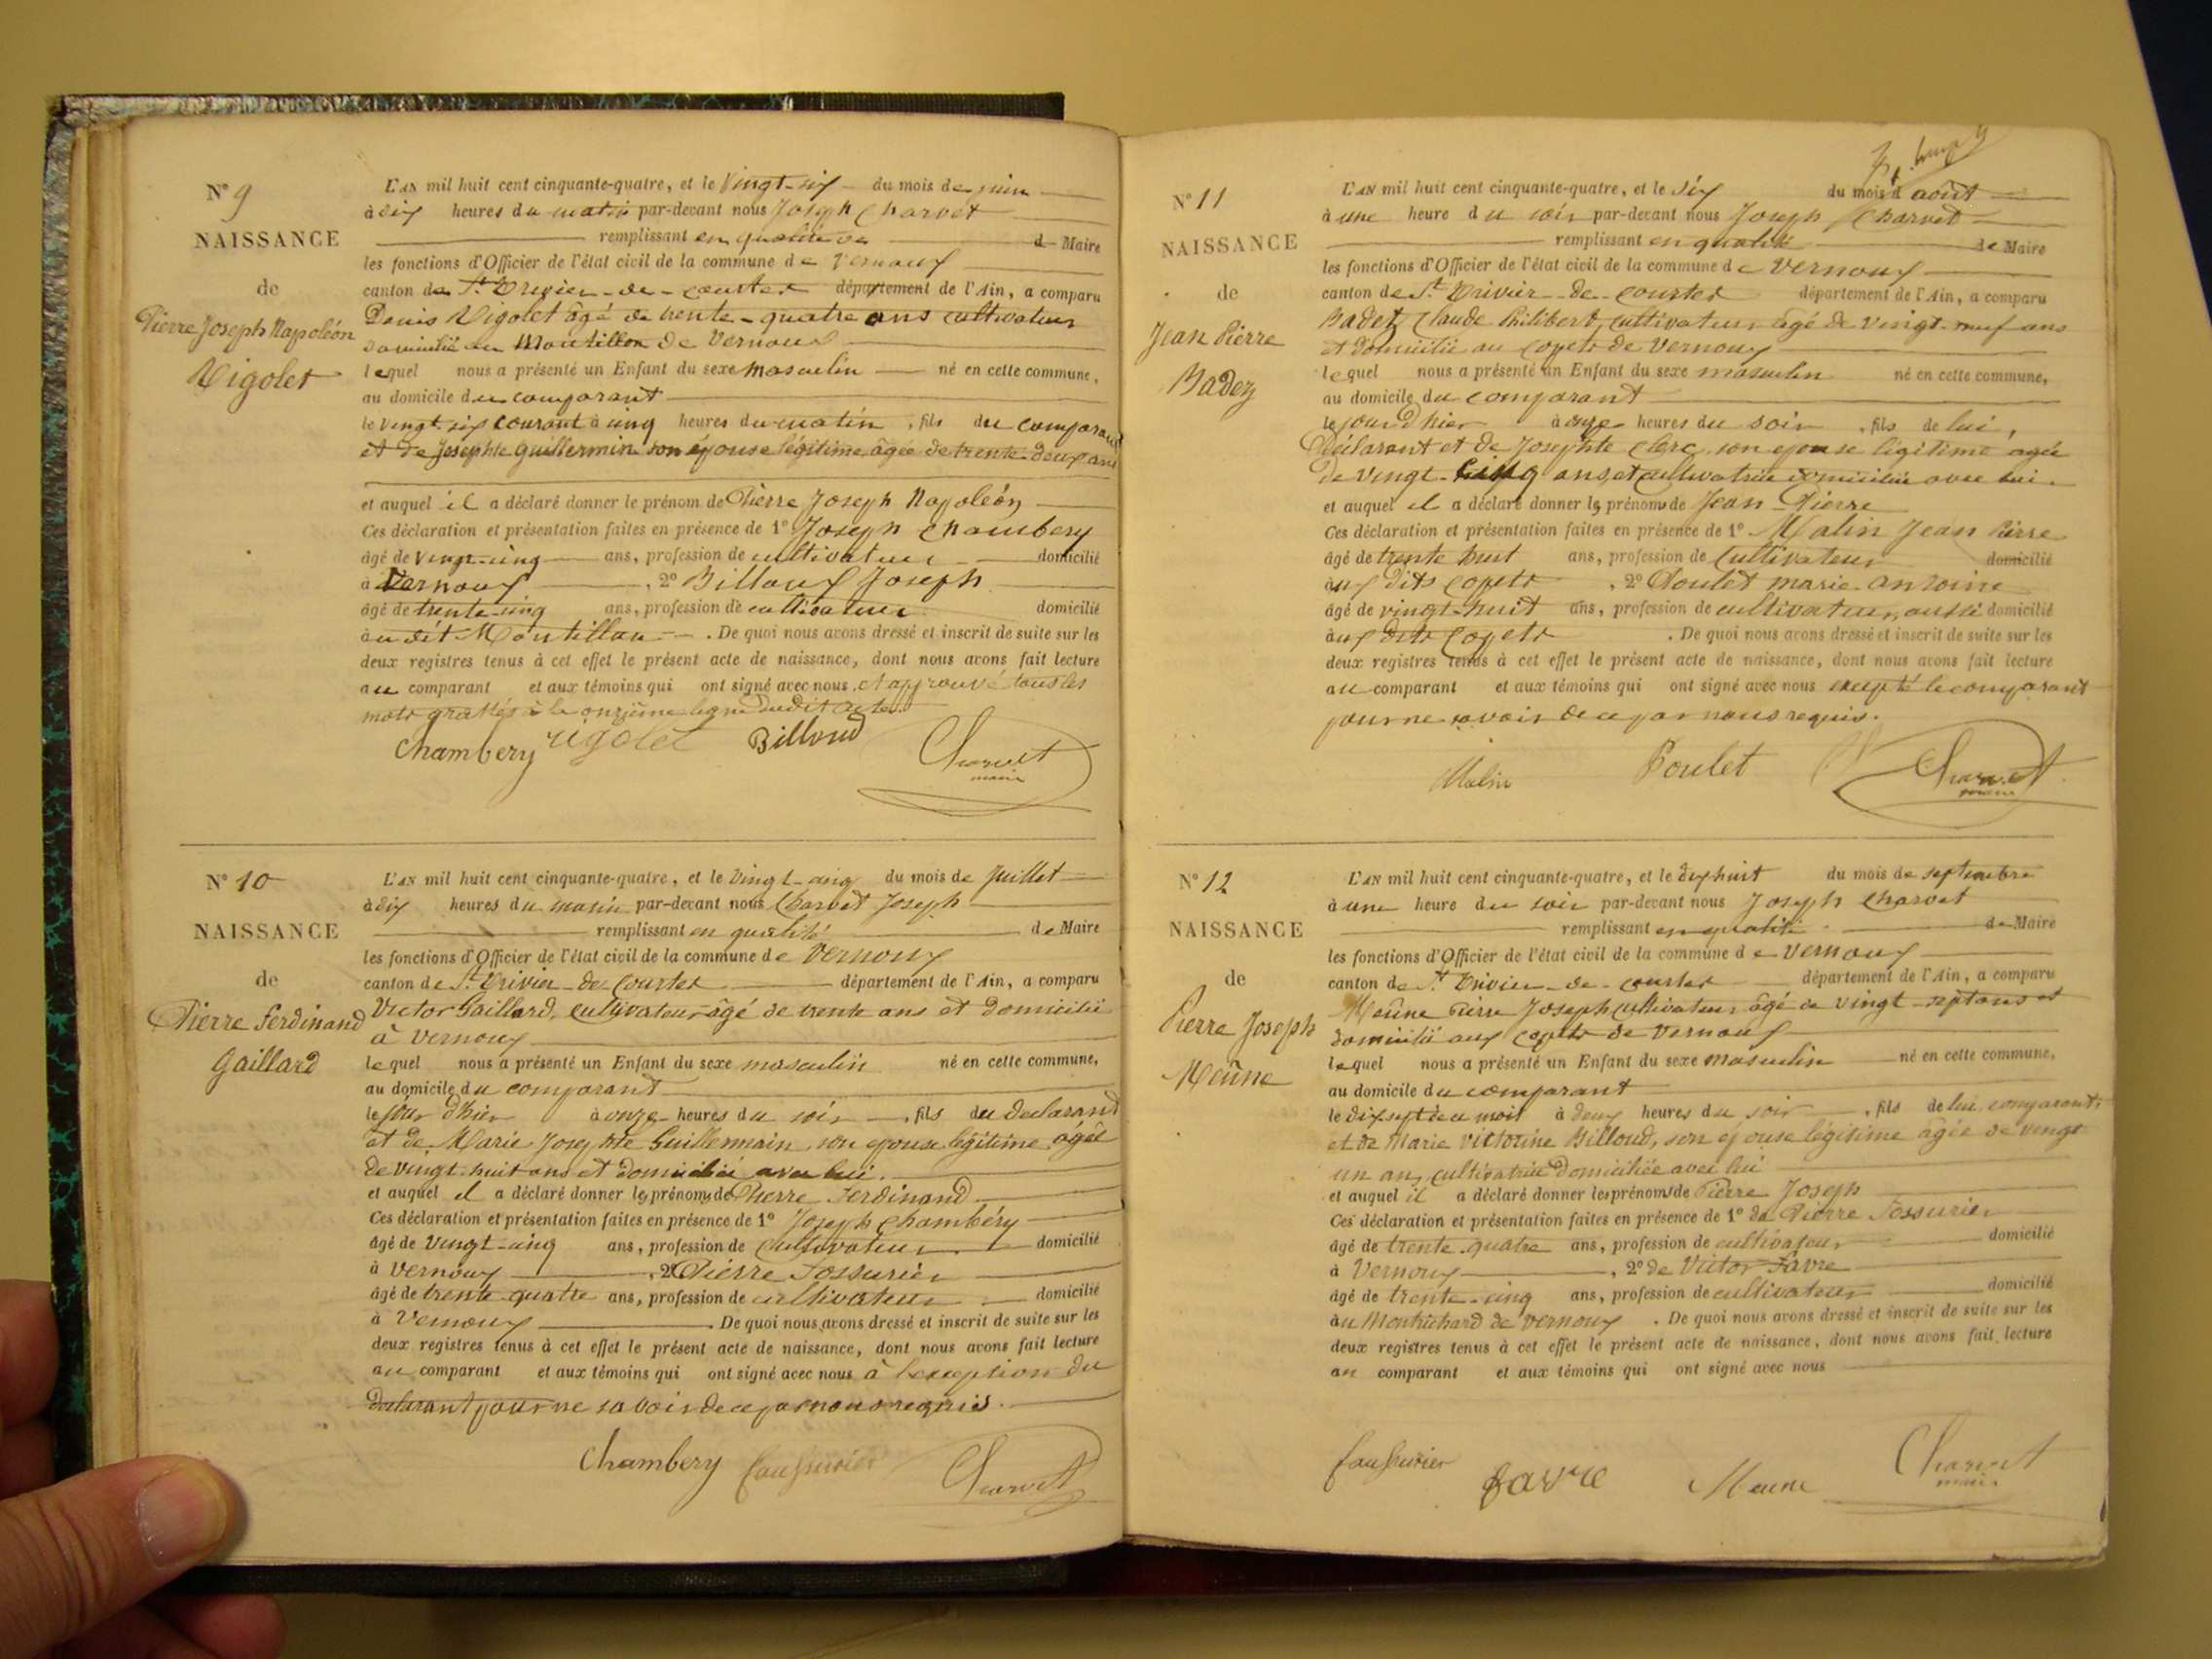 N° 9
NAISSANCE
de
Pierre Joseph Napoléon
Rigolet
L'AN mil huit cent cinquante-quatre, et le Vingt-six du mois de juin
à dix heures du matin par-devant nous Joseph Charvet
remplissant en qualité de Maire
les fonctions d'Officier de l'état civil de la commune de Vernoux
canton de St Trivier-de-Courtes département de l'Ain, a comparu
Denis Rigolet âgé de trente-quatre ans cultivateur
domicilié au Montillon de Vernoux
lequel nous a présenté un Enfant du sexe masculin né en cette commune,
au domicile du comparant
le vingt-six courant à cinq heures du matin, fils du comparant
et de Josephte Guillermin son épouse légitime âgée de trente-deux ans
et auquel il a déclaré donner le prénom de Pierre Joseph Napoléon
Ces déclaration et présentation faites en présence de 1° Joseph Chambery
âgé de vingt-cinq ans, profession de cultivateur domicilié
à Vernoux, 2° Billoud Joseph
âgé de trente-cinq ans, profession de cultivateur domicilié
au dit Montillon. De quoi nous avons dressé et inscrit de suite sur les
deux registres tenus à cet effet le présent acte de naissance, dont nous avons fait lecture
au comparant et aux témoins qui ont signé avec nous, et approuvé tous les
mots grattés à la onzième ligne dudit acte.
Chambery rigolet Billoud Charvet
maire
N° 10
NAISSANCE
de
Pierre Ferdinand
Gaillard
L'AN mil huit cent cinquante-quatre, et le vingt-cinq du mois de Juillet
à dix heures du matin par-devant nous Charvet Joseph
remplissant en qualité de Maire
les fonctions d'Officier de l'état civil de la commune de Vernoux
canton de St Trivier-de-Courtes département de l'Ain, a comparu
Victor Gaillard, cultivateur âgé de trente ans et domicilié
à Vernoux
lequel nous a présenté un Enfant du sexe masculin né en cette commune,
au domicile du comparant
le jour d'hier à onze heures du soir, fils du déclarant
et de Marie Josephte Guillermain, son épouse légitime âgée
de vingt-huit ans et domiciliée avec lui.
et auquel il a déclaré donner les prénoms de Pierre Ferdinand
Ces déclaration et présentation faites en présence de 1° Joseph Chambéry
âgé de Vingt-cinq ans, profession de cultivateur domicilié
à Vernoux, 2° Pierre Fossurier
âgé de trente-quatre ans, profession de cultivateur domicilié
à Vernoux. De quoi nous avons dressé et inscrit de suite sur les
deux registres tenus à cet effet le présent acte de naissance, dont nous avons fait lecture
au comparant et aux témoins qui ont signé avec nous à l'exception du
déclarant pour ne savoir de ce par nous requis.
Chambery Faussurier Charvet
N° 11
NAISSANCE
de
Jean Pierre
Badez
L'AN mil huit cent cinquante-quatre, et le six du mois d'août
à une heure du soir par-devant nous Joseph Charvet
remplissant en qualité de Maire
les fonctions d'Officier de l'état civil de la commune de Vernoux
canton de St Trivier-de-Courtes département de l'Ain, a comparu
Badez Claude Philibert, cultivateur âgé de vingt-neuf ans
et domicilié au Copets de Vernoux
lequel nous a présenté un Enfant du sexe masculin né en cette commune,
au domicile du comparant
le jour d'hier à onze heures du soir, fils de lui,
Déclarant et de Josephte Clerc, son épouse légitime agée
de vingt-cinq ans, et cultivatrice domiciliée avec lui.
et auquel il a déclaré donner les prénoms de Jean Pierre
Ces déclaration et présentation faites en présence de 1° Malin Jean Pierre
âgé de trente huit ans, profession de Cultivateur domicilié
aux dits Copets, 2° Poulet marie-antoine
âgé de vingt-huit ans, profession de cultivateur, aussi domicilié
aux dits Copets. De quoi nous avons dressé et inscrit de suite sur les
deux registres tenus à cet effet le présent acte de naissance, dont nous avons fait lecture
au comparant et aux témoins qui ont signé avec nous excepté le comparant
pour ne savoir de ce par nous requis.
Malin Poulet Charvet
maire
N° 12
NAISSANCE
de
Pierre Joseph
Meûne
L'AN mil huit cent cinquante-quatre, et le dix huit du mois de septembre
à une heure du soir par-devant nous Joseph Charvet
remplissant en qualité de Maire
les fonctions d'Officier de l'état civil de la commune de Vernoux
canton de St Trivier-de-Courtes département de l'Ain, a comparu
Meûne Pierre Joseph cultivateur âgé de vingt-sept ans et
domicilié aux Copets de Vernoux
lequel nous a présenté un Enfant du sexe masculin né en cette commune,
au domicile du comparant
le dix sept du mois à deux heures du soir, fils de lui comparant,
et de Marie Victorine Billoud, son épouse légitime âgée de vingt
un ans, cultivatrice domiciliée avec lui
et auquel il a déclaré donner les prénoms de Pierre Joseph
Ces déclaration et présentation faites en présence de 1° de Pierre Fossurier
âgé de trente-quatre ans, profession de cultivateur domicilié
à Vernoux, 2° de Victor Favre
âgé de trente-cinq ans, profession de cultivateur domicilié
au Montrichard de Vernoux. De quoi nous avons dressé et inscrit de suite sur les
deux registres tenus à cet effet le présent acte de naissance, dont nous avons fait lecture
au comparant et aux témoins qui ont signé avec nous
Faussurier favre Meune Charvet
maire